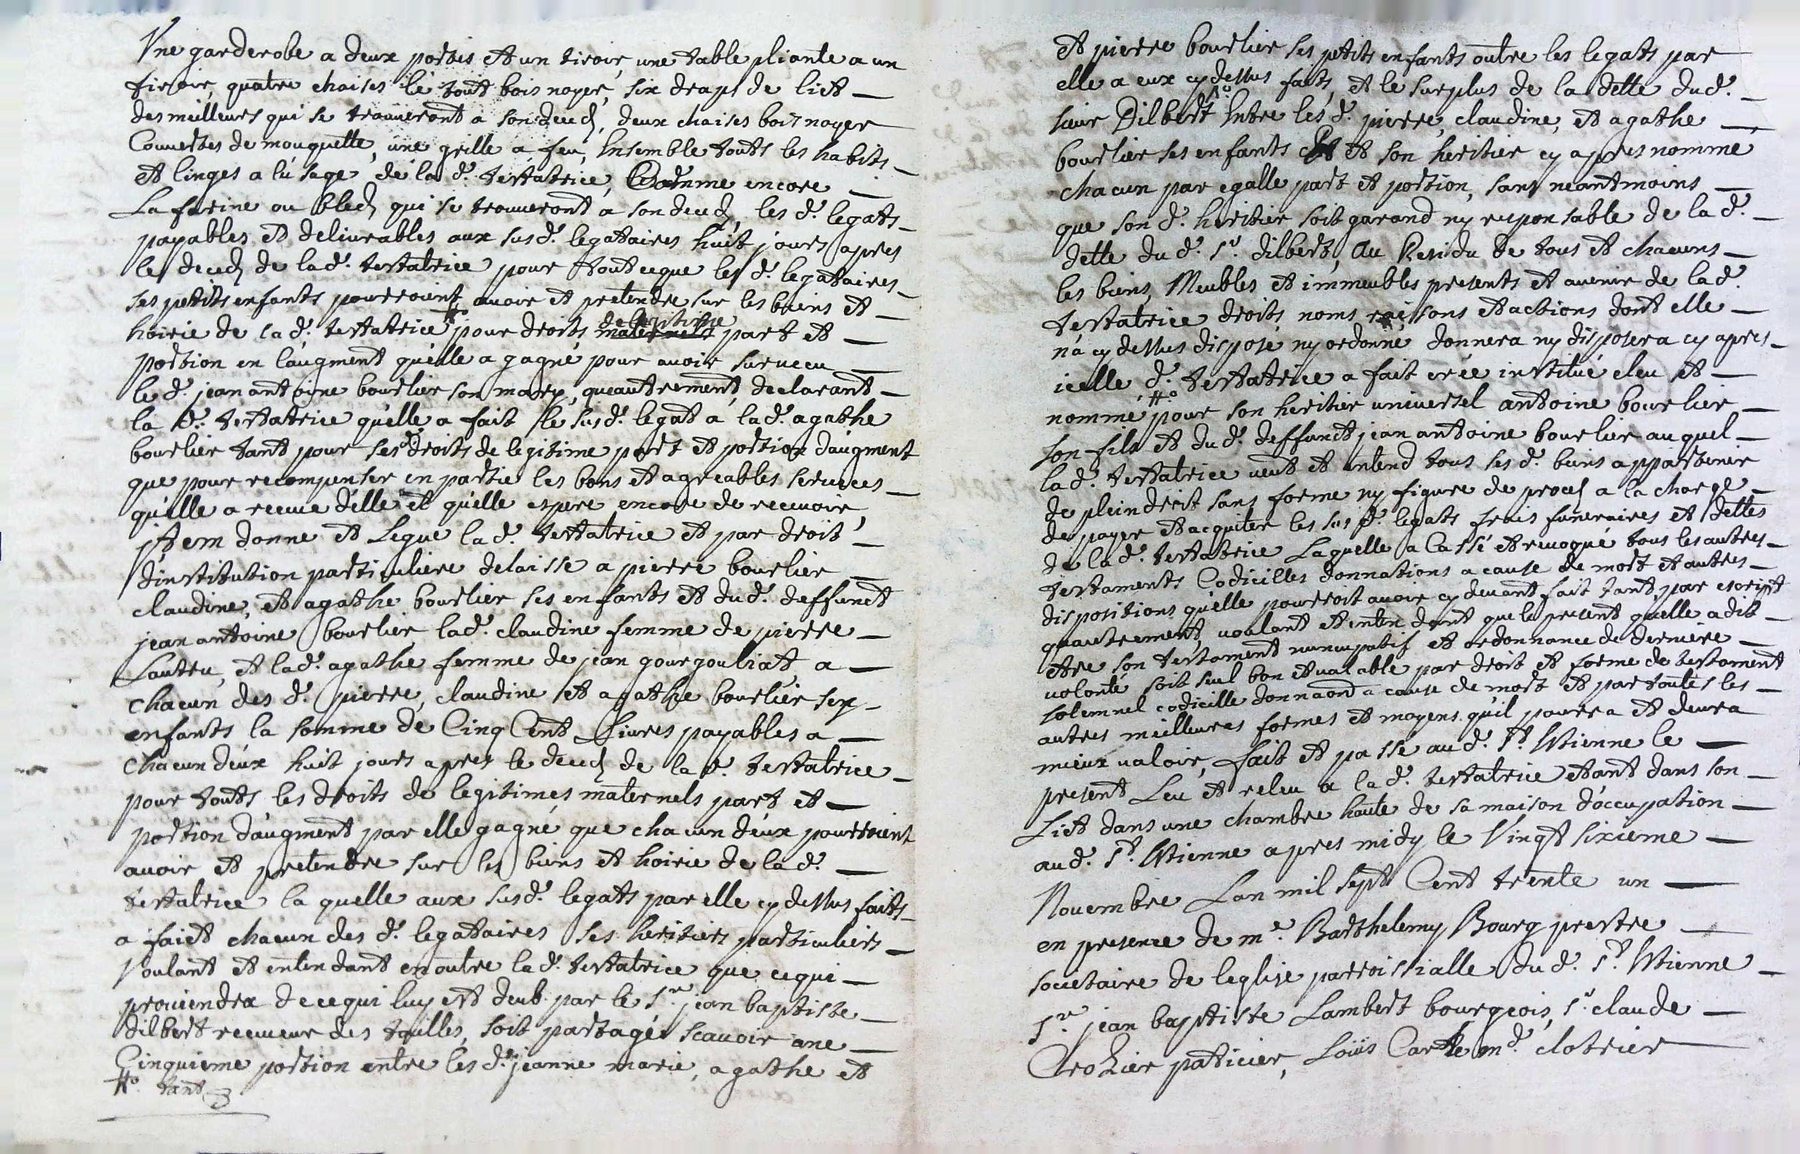 Vne garderobe a deux portes et un tiroir, une table pliante a un
tiroir, quatre chaises le tout bois noyer, six draps de lict
des meilleurs qui se trouueront a son deces, deux chaises bois noyer
Couuertes de mouquette, une grille a feu, Ensemble touts les habits
et linges a lusage de lad. testatrice, Comme encore
La farine ou bled qui se trouueront a son deces, les d. legats
payables et deliurables aux susd. legataires huit jours apres
le deces de lad. testatrice pour tout ceque les d. legataires
ses petits enfants pourroient avoir et pretendre sur les biens et
hoirie de lad. testatrice pour droits maternels part et
portion en laugment quelle a gagné pour auoir surueçu
le d. jean antoine bourlier son mary, queautrement, declarant
la d. testatrice quelle a fait le susd. legat a lad. agathe
bourlier tant pour ses droits de legitime part et portion daugment
que pour recompenser en partie les bons et agreables seruices
quelle a receue delle et quelle espere encore de receuoir,
jtem donne et Legue lad. testatrice et par droit
dinstitution particuliere delaisse a pierre bourlier
claudine, et agathe bourlier ses enfants et dud. deffunct
jean antoine bourlier lad. claudine femme de pierre
Lautru, et lad. agathe femme de jean gourgouliat a
chacun des d. pierre, claudine et agathe bourlier ses
enfants la somme de Cinq Cent Liures payables a
chacun deux huit jours apres le deces de la d. testatrice
pour touts les droits de legitimes maternels part et
portion daugment par elle gagné que chacun deux pourroient
avoir et pretendre sur les biens et hoirie de lad.
testatrice la quelle aux susd. legats par elle cy dessus faits
a faict chacun des d. legataires ses heritiers particuliers
Voulant et entendant en outre lad. testatrice que cequi
prouiendra de cequi luy est deub par le Sr. jean baptiste
dilbert receueur des tailles, soit partagé scauoir une
Cinquieme portion entre les d. jeanne marie, agathe et
tant
et pierre bourlier ses petits enfants outre les legats par
elle a eux cy dessus faits, et le surplus de la dette dud.
sieur Dilbert Entre les d. pierre, claudine, et agathe
bourlier ses enfants et son heritier cy apres nommé
chacun par egalle part et portion, sans neantmoins
que son d. heritier soit garand ny responsable de la d.
dette du d. Sr. dilbert, Au Residu de tous et chacuns
les biens Meubles et immeubles presents et auenir de la d.
testatrice droits noms raisons et actions dont elle
n'a cy dessus disposé ny ordonné donnera ny disposera cy apres
icelle d. testatrice a fait crée institué eleu et
nommé pour son heritier universel antoine bourlier
son fils et dud. deffunct jean antoine bourlier auquel
la d. testatrice ueut et entend tous ses d. biens appartenir
de plein droit sans forme ny figure de proces a la charge
de payer et acquiter les sus d. legats frais funeraires et dettes
de la d. testatrice Laquelle a Cassé et reuoque tous les autres
testaments Codicilles donnations a cause de mort et autres
dispositions quelle pourroit auoir cy deuant fait tant par escript
quautrement, voulant et entendant que le present quelle a dit
etre son testament nuncupatif et ordonnance de derniere
volonté soit seul bon et valable par droit et forme de testament
solemnel codicille donnaon a cause de mort et par toutes les
autres meilleures formes et moyens quil pourra et deura
mieux ualoir, fait et passé au d. St. Etienne le
present Leu et releu a la d. testatrice etant dans son
Lict dans une chambre haute de sa maison d'occupation
au d. St. Etienne apres midy le Vingt sixieme
Nouembre Lan mil sept Cent trente un
en presence de me. Barthelemy Bourg prestre
societaire de leglise parroissialle du d. St. Etienne
Sr. jean baptiste Lambert bourgeois, Sr. claude
Crozier paticier, Loüis md. clotrier